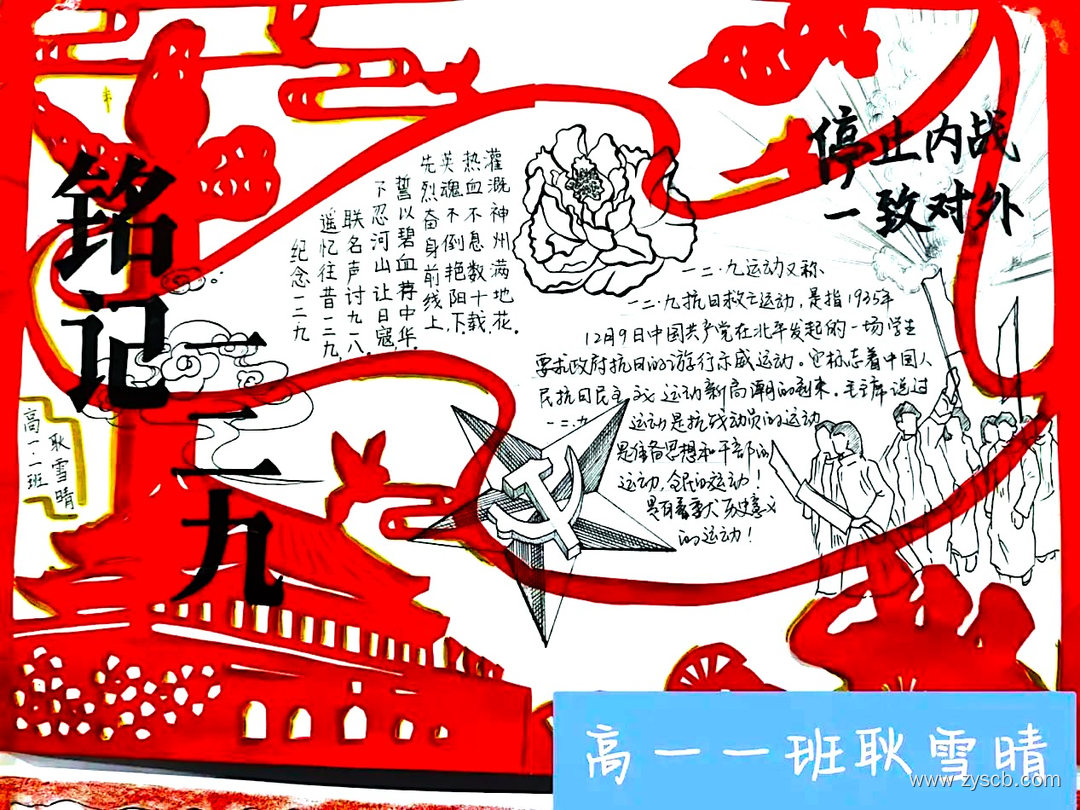 铭记
一二九
高一·一班
耿雪晴
灌溉神州满地花。
热血不息数十载,
英魂不倒艳阳下
先烈奋身前线上,
誓以碧血荐中华,
下忍河山让日寇,
联名声讨九一八,
遥忆往昔一二九,
纪念一二九
停止内战
一致对外
一二·九运动又称
一二·九抗日救亡运动,是指1935年
12月9日中国共产党在北平发起的一场学生
要求政府抗日的游行示威运动。它标志着中国人
民抗日民主 运动新高潮的到来。毛主席说过
一二·九 运动是抗战动员的运动
是准备思想和干部的
运动,全民的运动!
具有着重大历史意义
的运动!
高一一班耿雪晴
www.zyscb.com